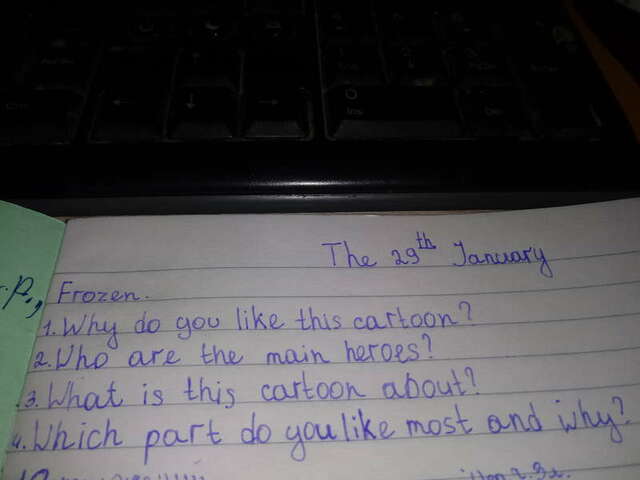 The 29th January
Frozen.
1. Why do you like this cartoon?
2. Who are the main heroes?
3. What is this cartoon about?
4. Which part do you like most and why?